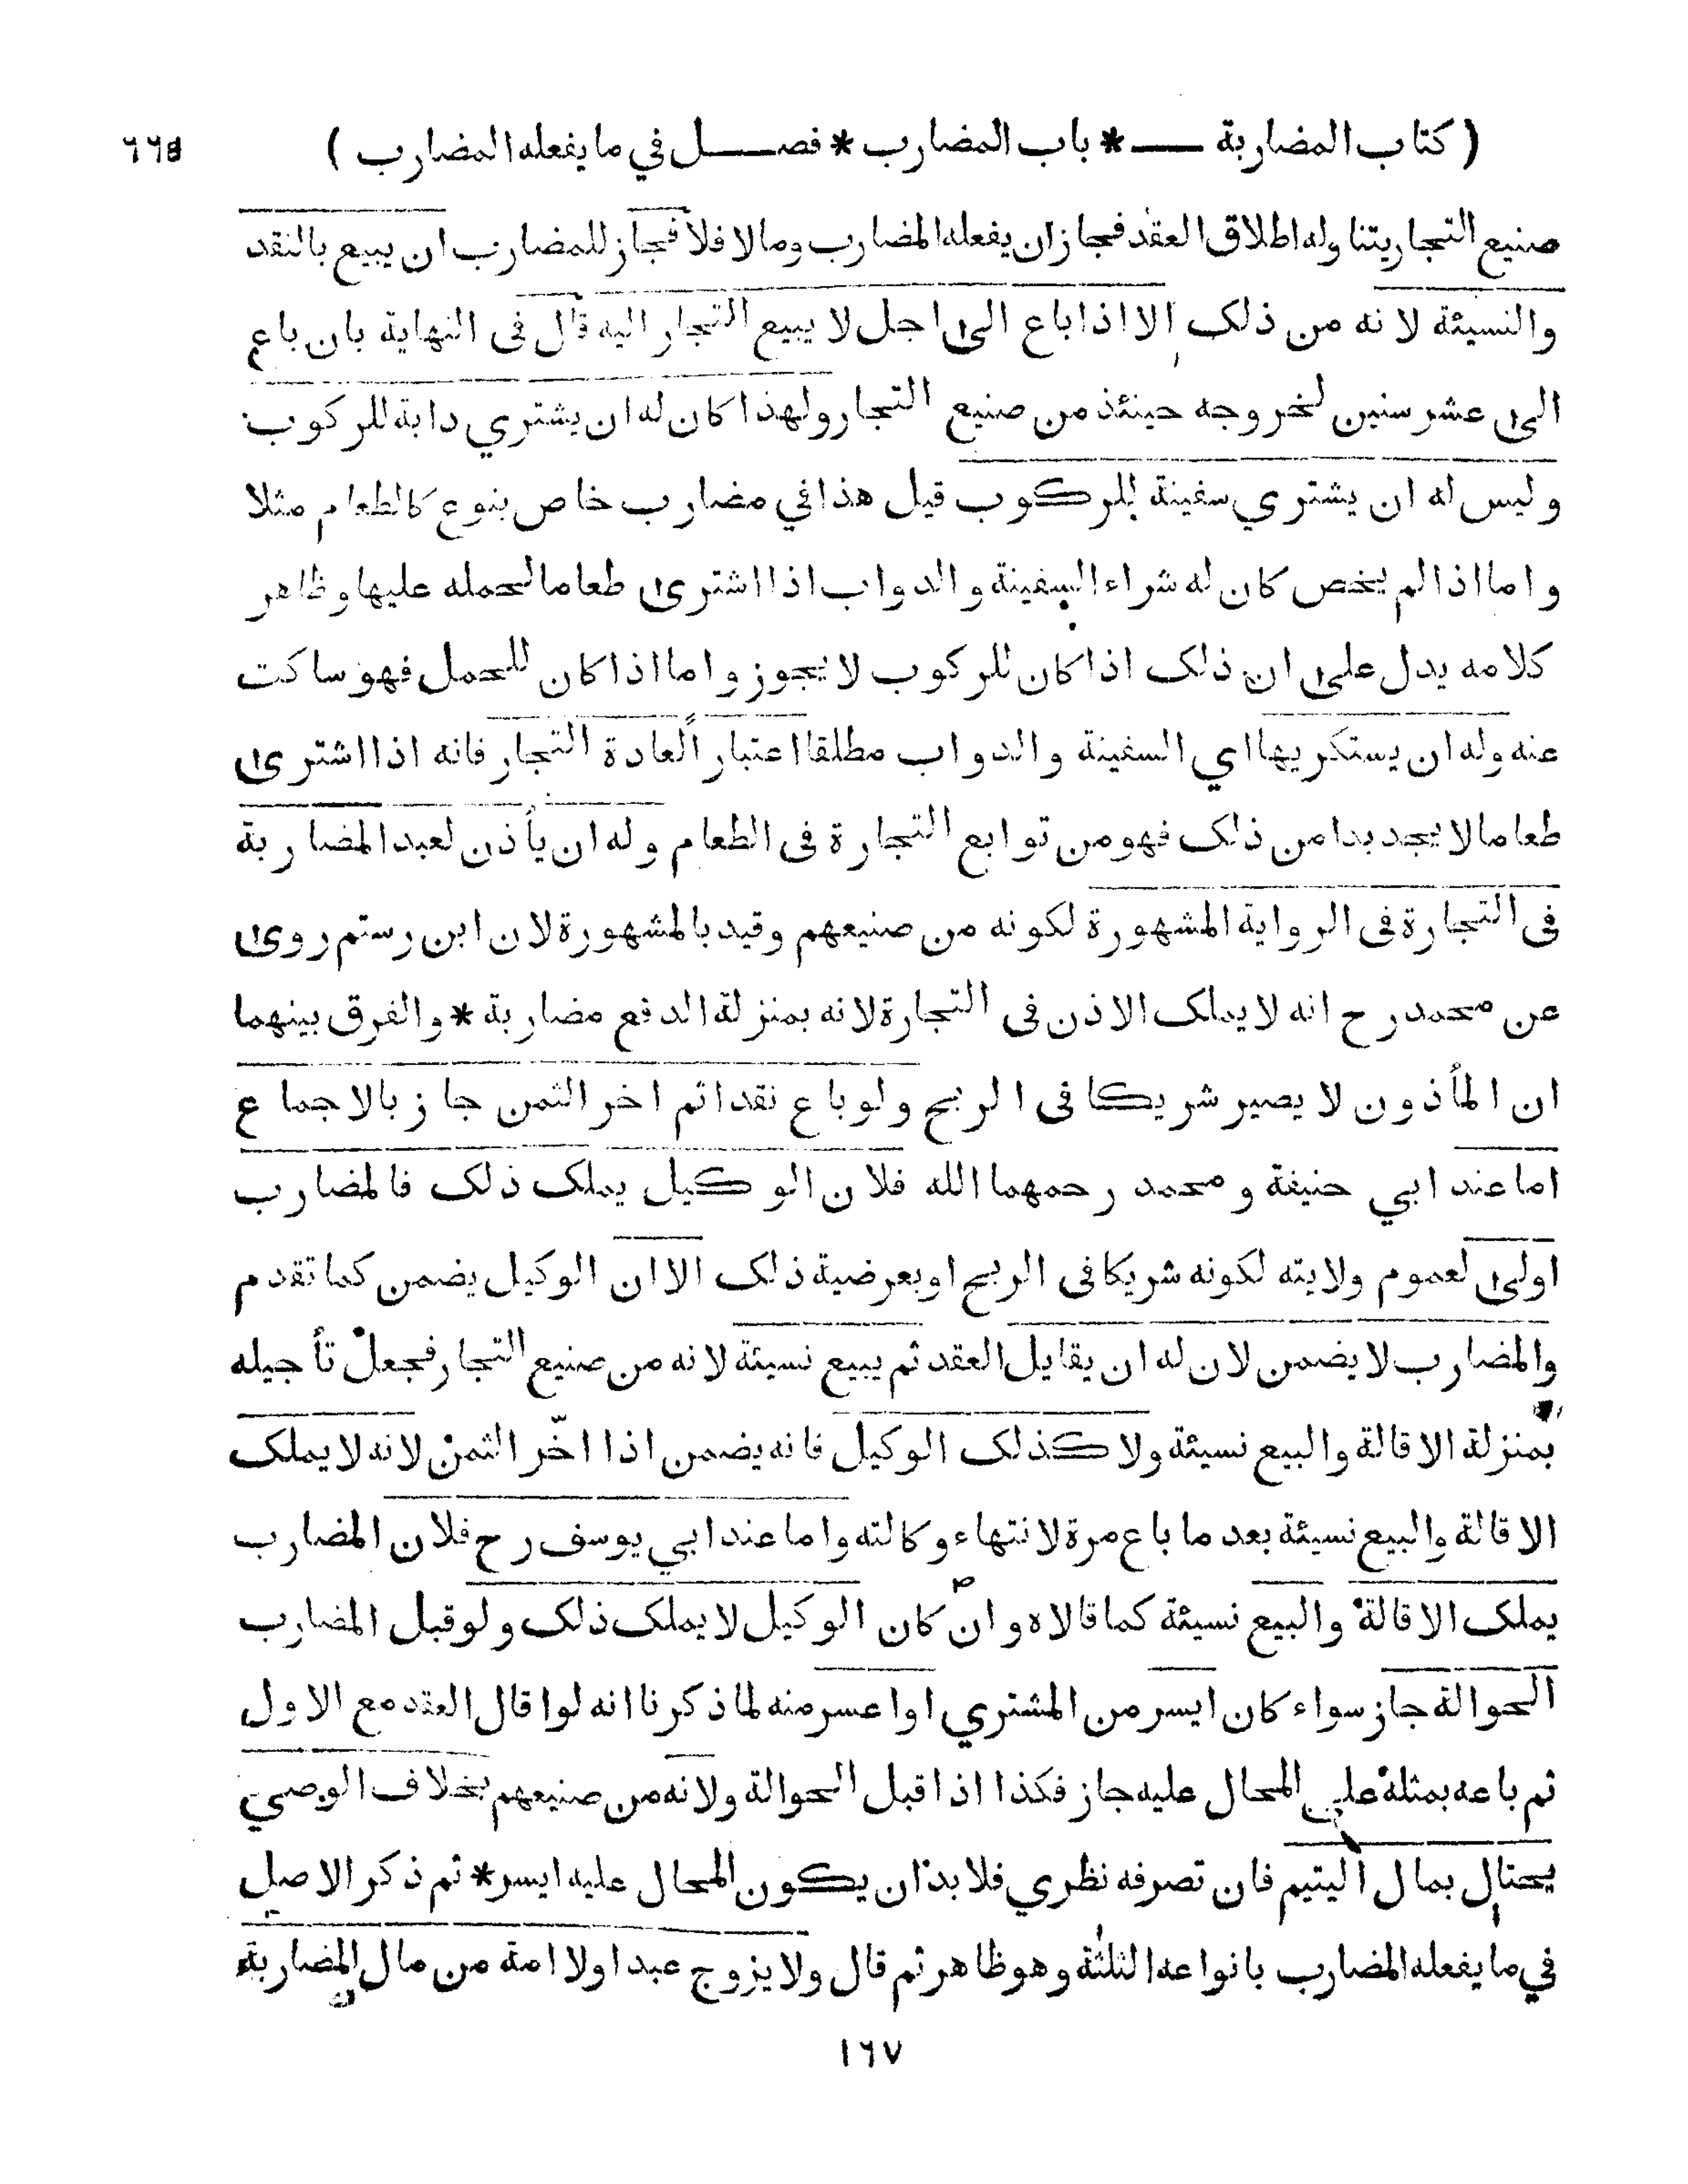 ( كتاب المضاربة — * باب المضارب * فصل في ما يفعله المضارب ) ٦٦٥
صنيع التجار يتناوله اطلاق العقد فجاز ان يفعله المضارب وما لا فلا فجاز للمضارب ان يبيع بالنقد
والنسيئة لانه من ذلك الا اذا باع الى اجل لا يبيع التجار اليه قال فى النهاية بان باع
الى عشر سنين لخروجه حينئذ من صنيع التجار ولهذا كان له ان يشتري دابة للركوب
وليس له ان يشتري سفينة للركوب قيل هذا في مضارب خاص بنوع كالطعام مثلا
واما اذا لم يخص كان له شراء السفينة والدواب اذا اشترى طعاما لحمله عليها وظاهر
كلامه يدل على ان ذلك اذا كان للركوب لا يجوز واما اذا كان للحمل فهو ساكت
عنه وله ان يستكريها اي السفينة والدواب مطلقا اعتبارا لعادة التجار فانه اذا اشترى
طعاما لا يجد بدا من ذلك فهو من توابع التجارة فى الطعام وله ان يأذن لعبد المضاربة
فى التجارة فى الرواية المشهورة لكونه من صنيعهم وقيد بالمشهورة لان ابن رستم روى
عن محمد رح انه لا يملك الاذن فى التجارة لانه بمنزلة الدفع مضاربة * والفرق بينهما
ان المأذون لا يصير شريكا فى الربح ولو باع نقدا ثم اخر الثمن جاز بالاجماع
اما عند ابي حنيفة ومحمد رحمهما الله فلان الوكيل يملك ذلك فالمضارب
اولى لعموم ولايته لكونه شريكا فى الربح او بعرضية ذلك الا ان الوكيل يضمن كما تقدم
والمضارب لا يضمن لان له ان يقايل العقد ثم يبيع نسيئة لانه من صنيع التجار فجعل تأجيله
بمنزلة الاقالة والبيع نسيئة ولا كذلك الوكيل فانه يضمن اذا اخّر الثمن لانه لا يملك
الاقالة والبيع نسيئة بعد ما باع مرة لانتهاء وكالته واما عند ابي يوسف رح فلان المضارب
يملك الاقالة والبيع نسيئة كما قالاه وان كان الوكيل لا يملك ذلك ولو قبل المضارب
الحوالة جاز سواء كان ايسر من المشتري او اعسر منه لما ذكرنا انه لو اقال العقد مع الاول
ثم باعه بمثله على المحال عليه جاز فكذا اذا قبل الحوالة ولانه من صنيعهم بخلاف الوصي
يحتال بمال اليتيم فان تصرفه نظري فلا بد ان يكون المحال عليه ايسر * ثم ذكر الاصل
في ما يفعله المضارب بانواعه الثلثة وهو ظاهر ثم قال ولا يزوج عبدا ولا امة من مال المضاربة
١٦٧